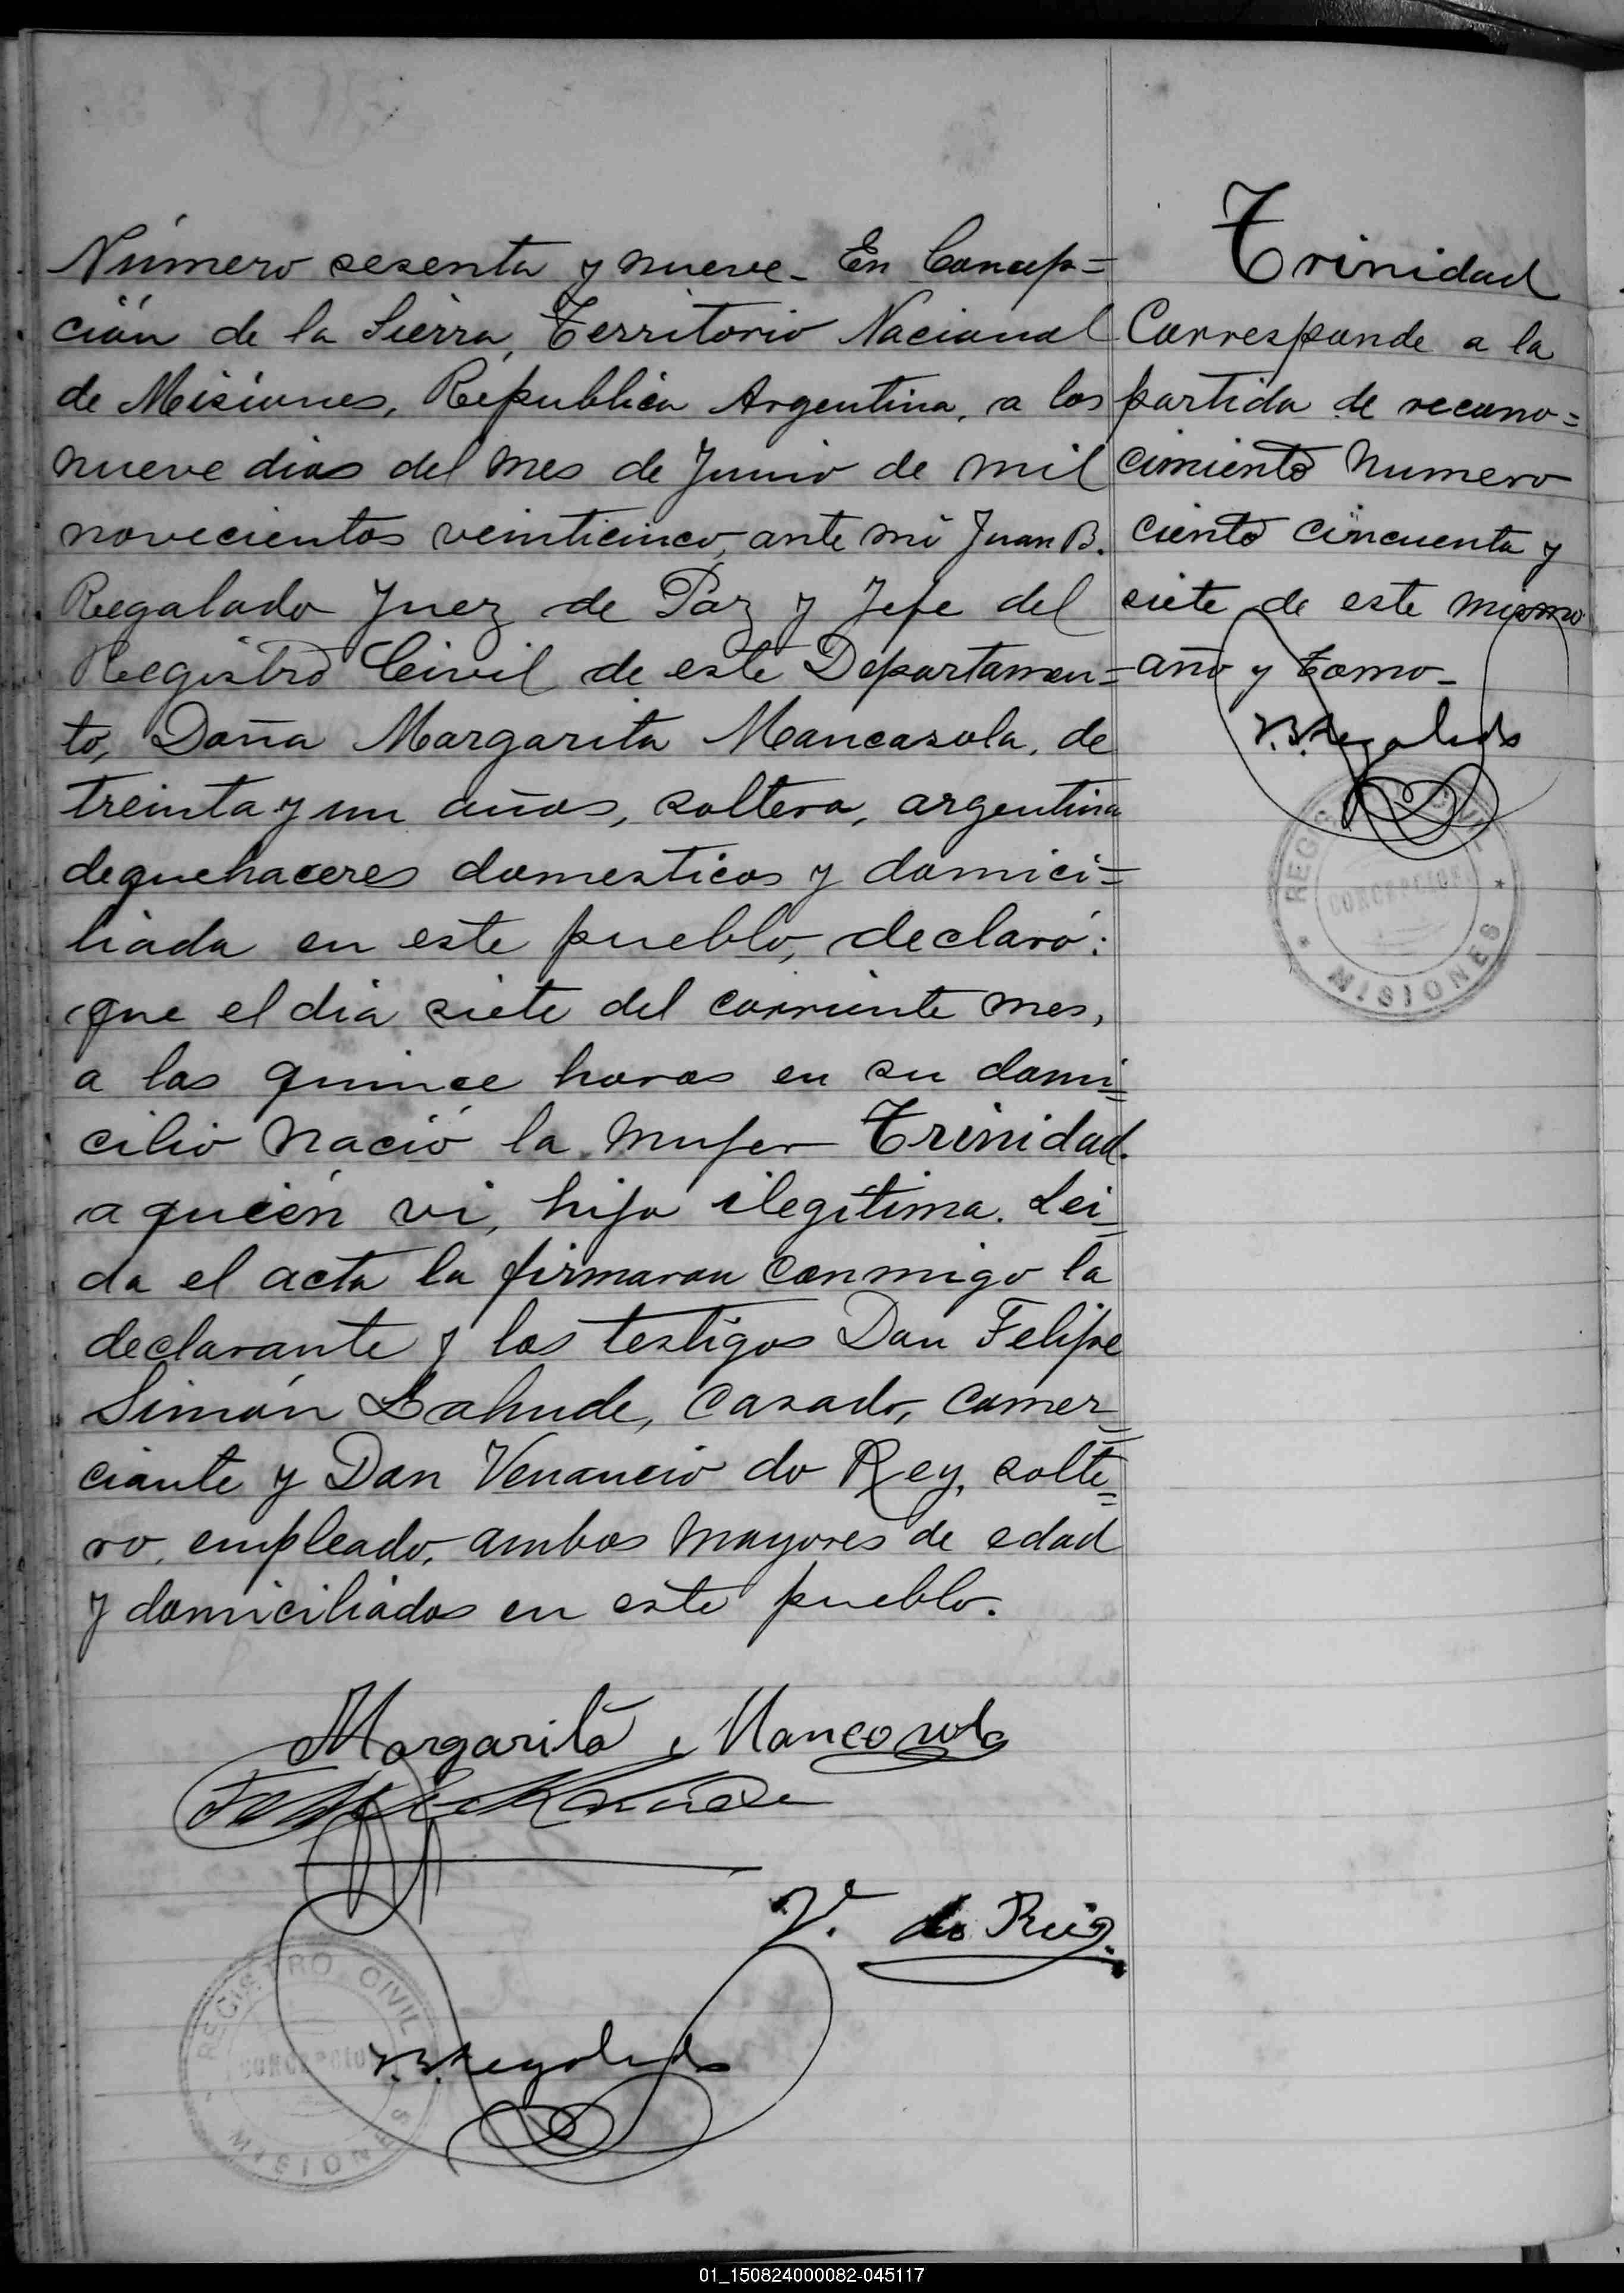 Número sesenta y nueve - En Concep=
ción de la Sierra, Territorio Nacional
de Misiones, Republica Argentina, a los
nueve dias del mes de Junio de mil
novecientos veinticinco, ante mi Juan B.
Regalado Juez de Paz y Jefe del
Registro Civil de este Departamen=
to, Doña Margarita Mancasola, de
treinta y un años, soltera, argentina
de quehaceres domesticos y domici=
liada en este pueblo, declaró:
que el dia siete del corriente mes,
a las quince horas en su domi=
cilio nació la mujer Trinidad.
a quién vi, hija ilegítima. Lei_
da el acta la firmaron conmigo la
declarante y los testigos Don Felipe
Simón Bahude, casado, comer=
ciante y Don Venancio do Rey, solte=
ro, empleado, ambos mayores de edad
y domiciliados en este pueblo.
Margarita Mancosola
V. do Rey.
J.B. Regalado
REGISTRO CIVIL
CONCEPCION
MISIONES
Trinidad
Corresponde a la
partida de recono=
cimiento numero
ciento cincuenta y
siete de este mismo
año y tomo -
J.B. Regalado
REGISTRO CIVIL
CONCEPCION
MISIONES
01_150824000082-045117